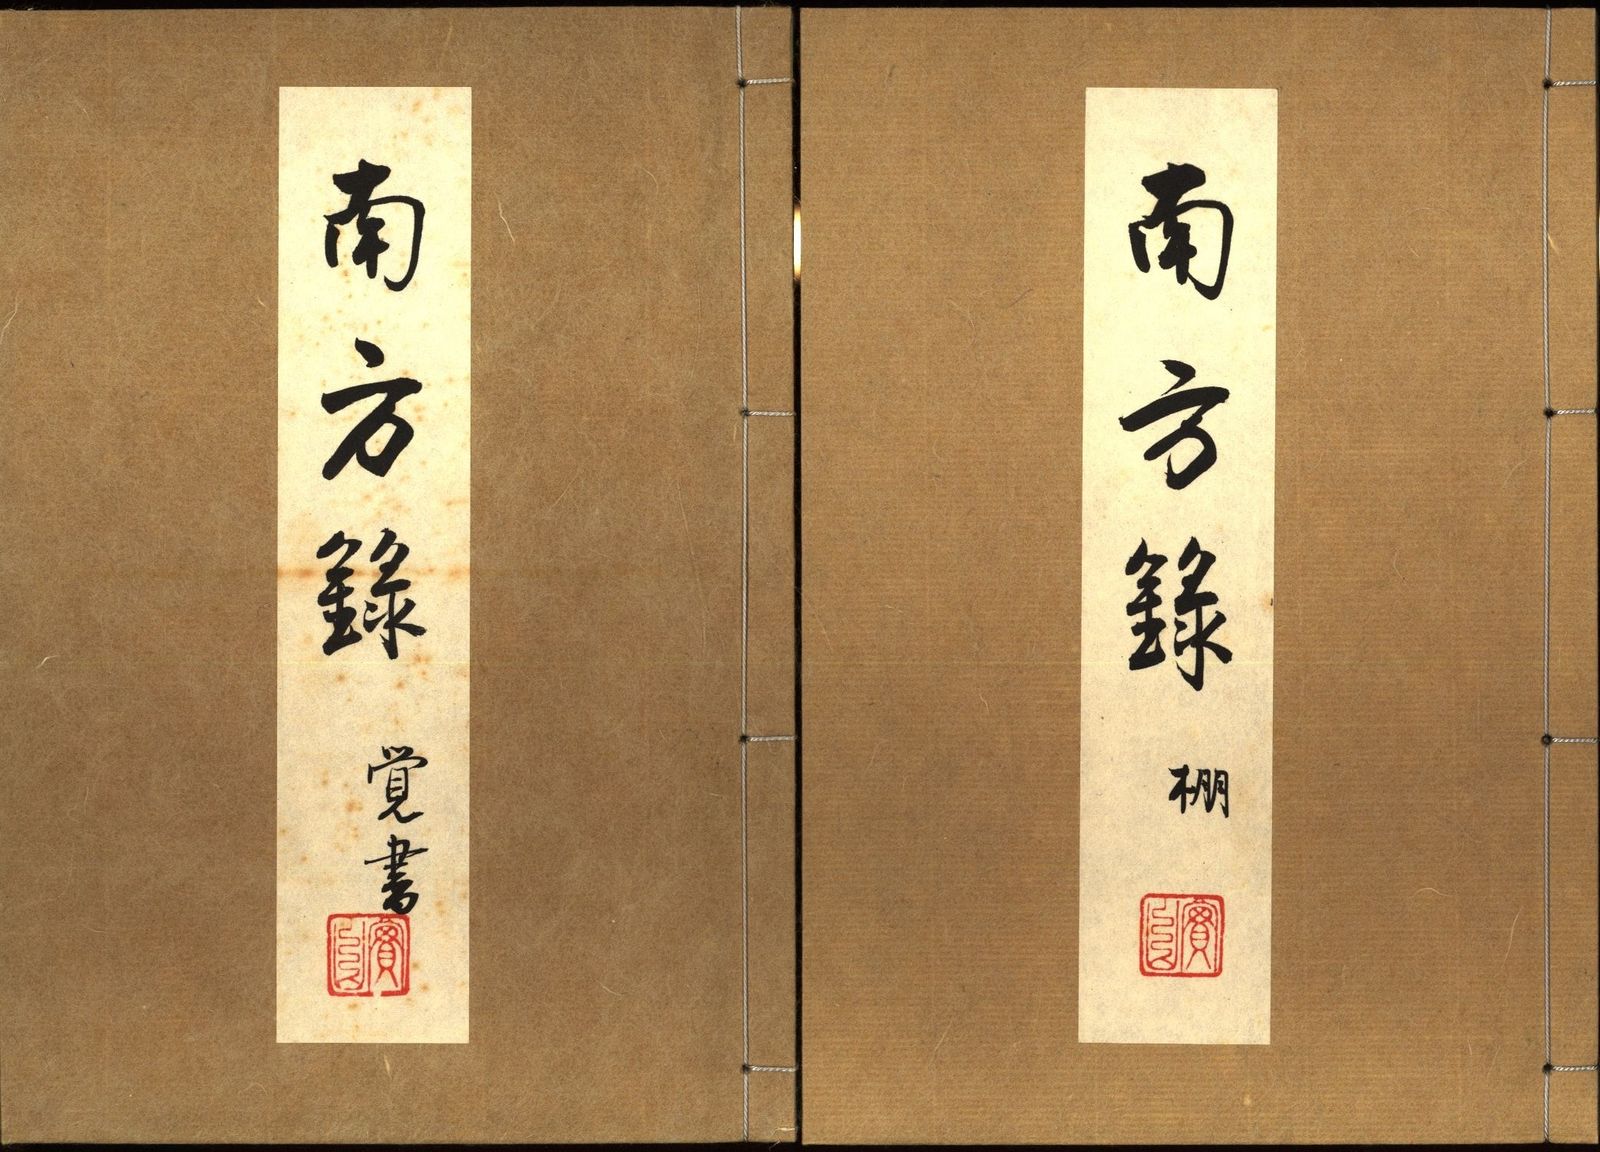 南方錄
覚書
南方錄
棚